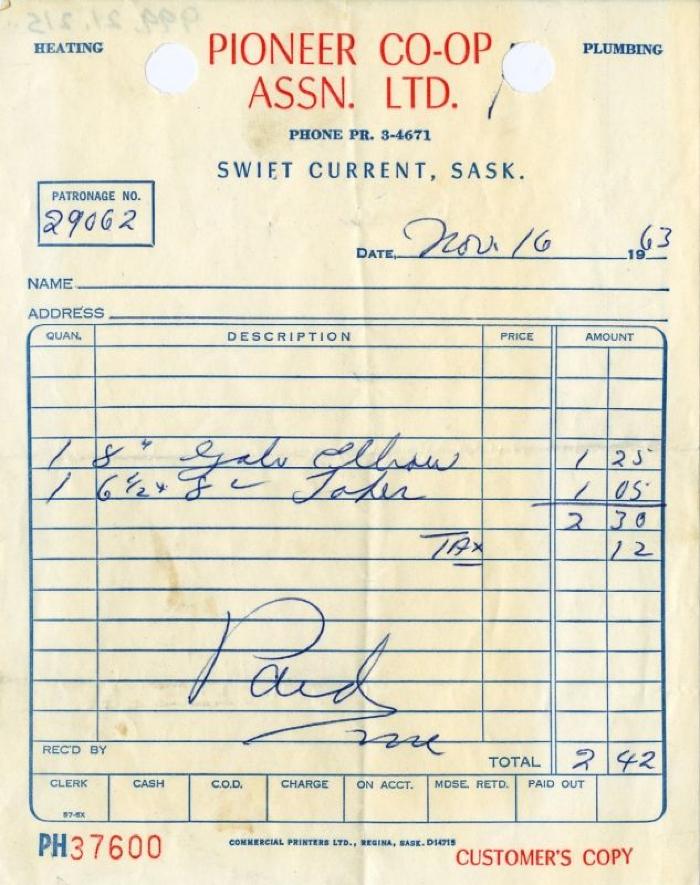 HEATING PIONEER CO-OP PLUMBING
ASSN. LTD.
PHONE PR. 3-4671
SWIFT CURRENT, SASK.
PATRONAGE NO.
29062
DATE Nov. 16 1963
NAME
ADDRESS
QUAN. DESCRIPTION PRICE AMOUNT
1 8" Galv Elbow 1 25
1 6 1/2 x 8 Taper 1 05
2 30
TAX 12
Paid
REC'D BY
TOTAL 2 42
CLERK CASH C.O.D. CHARGE ON ACCT. MDSE. RETD. PAID OUT
57-6X
PH37600 COMMERCIAL PRINTERS LTD., REGINA, SASK. D14715
CUSTOMER'S COPY